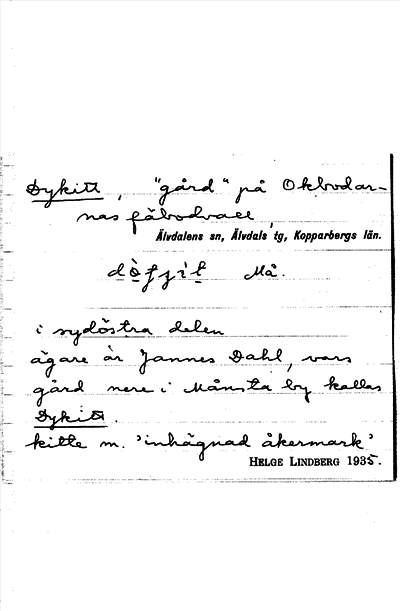 Dykitt, "gård" på Okbodar-
nas fäbodvall,
Älvdalens sn, Älvdals tg, Kopparbergs län.
Må.
i sydöstra delen
ägare är Jannes Dahl, vars
gård nere i Månsta by kallas
Dykitt.
kitte m. 'inhägnad åkermark'
HELGE LINDBERG 1935.